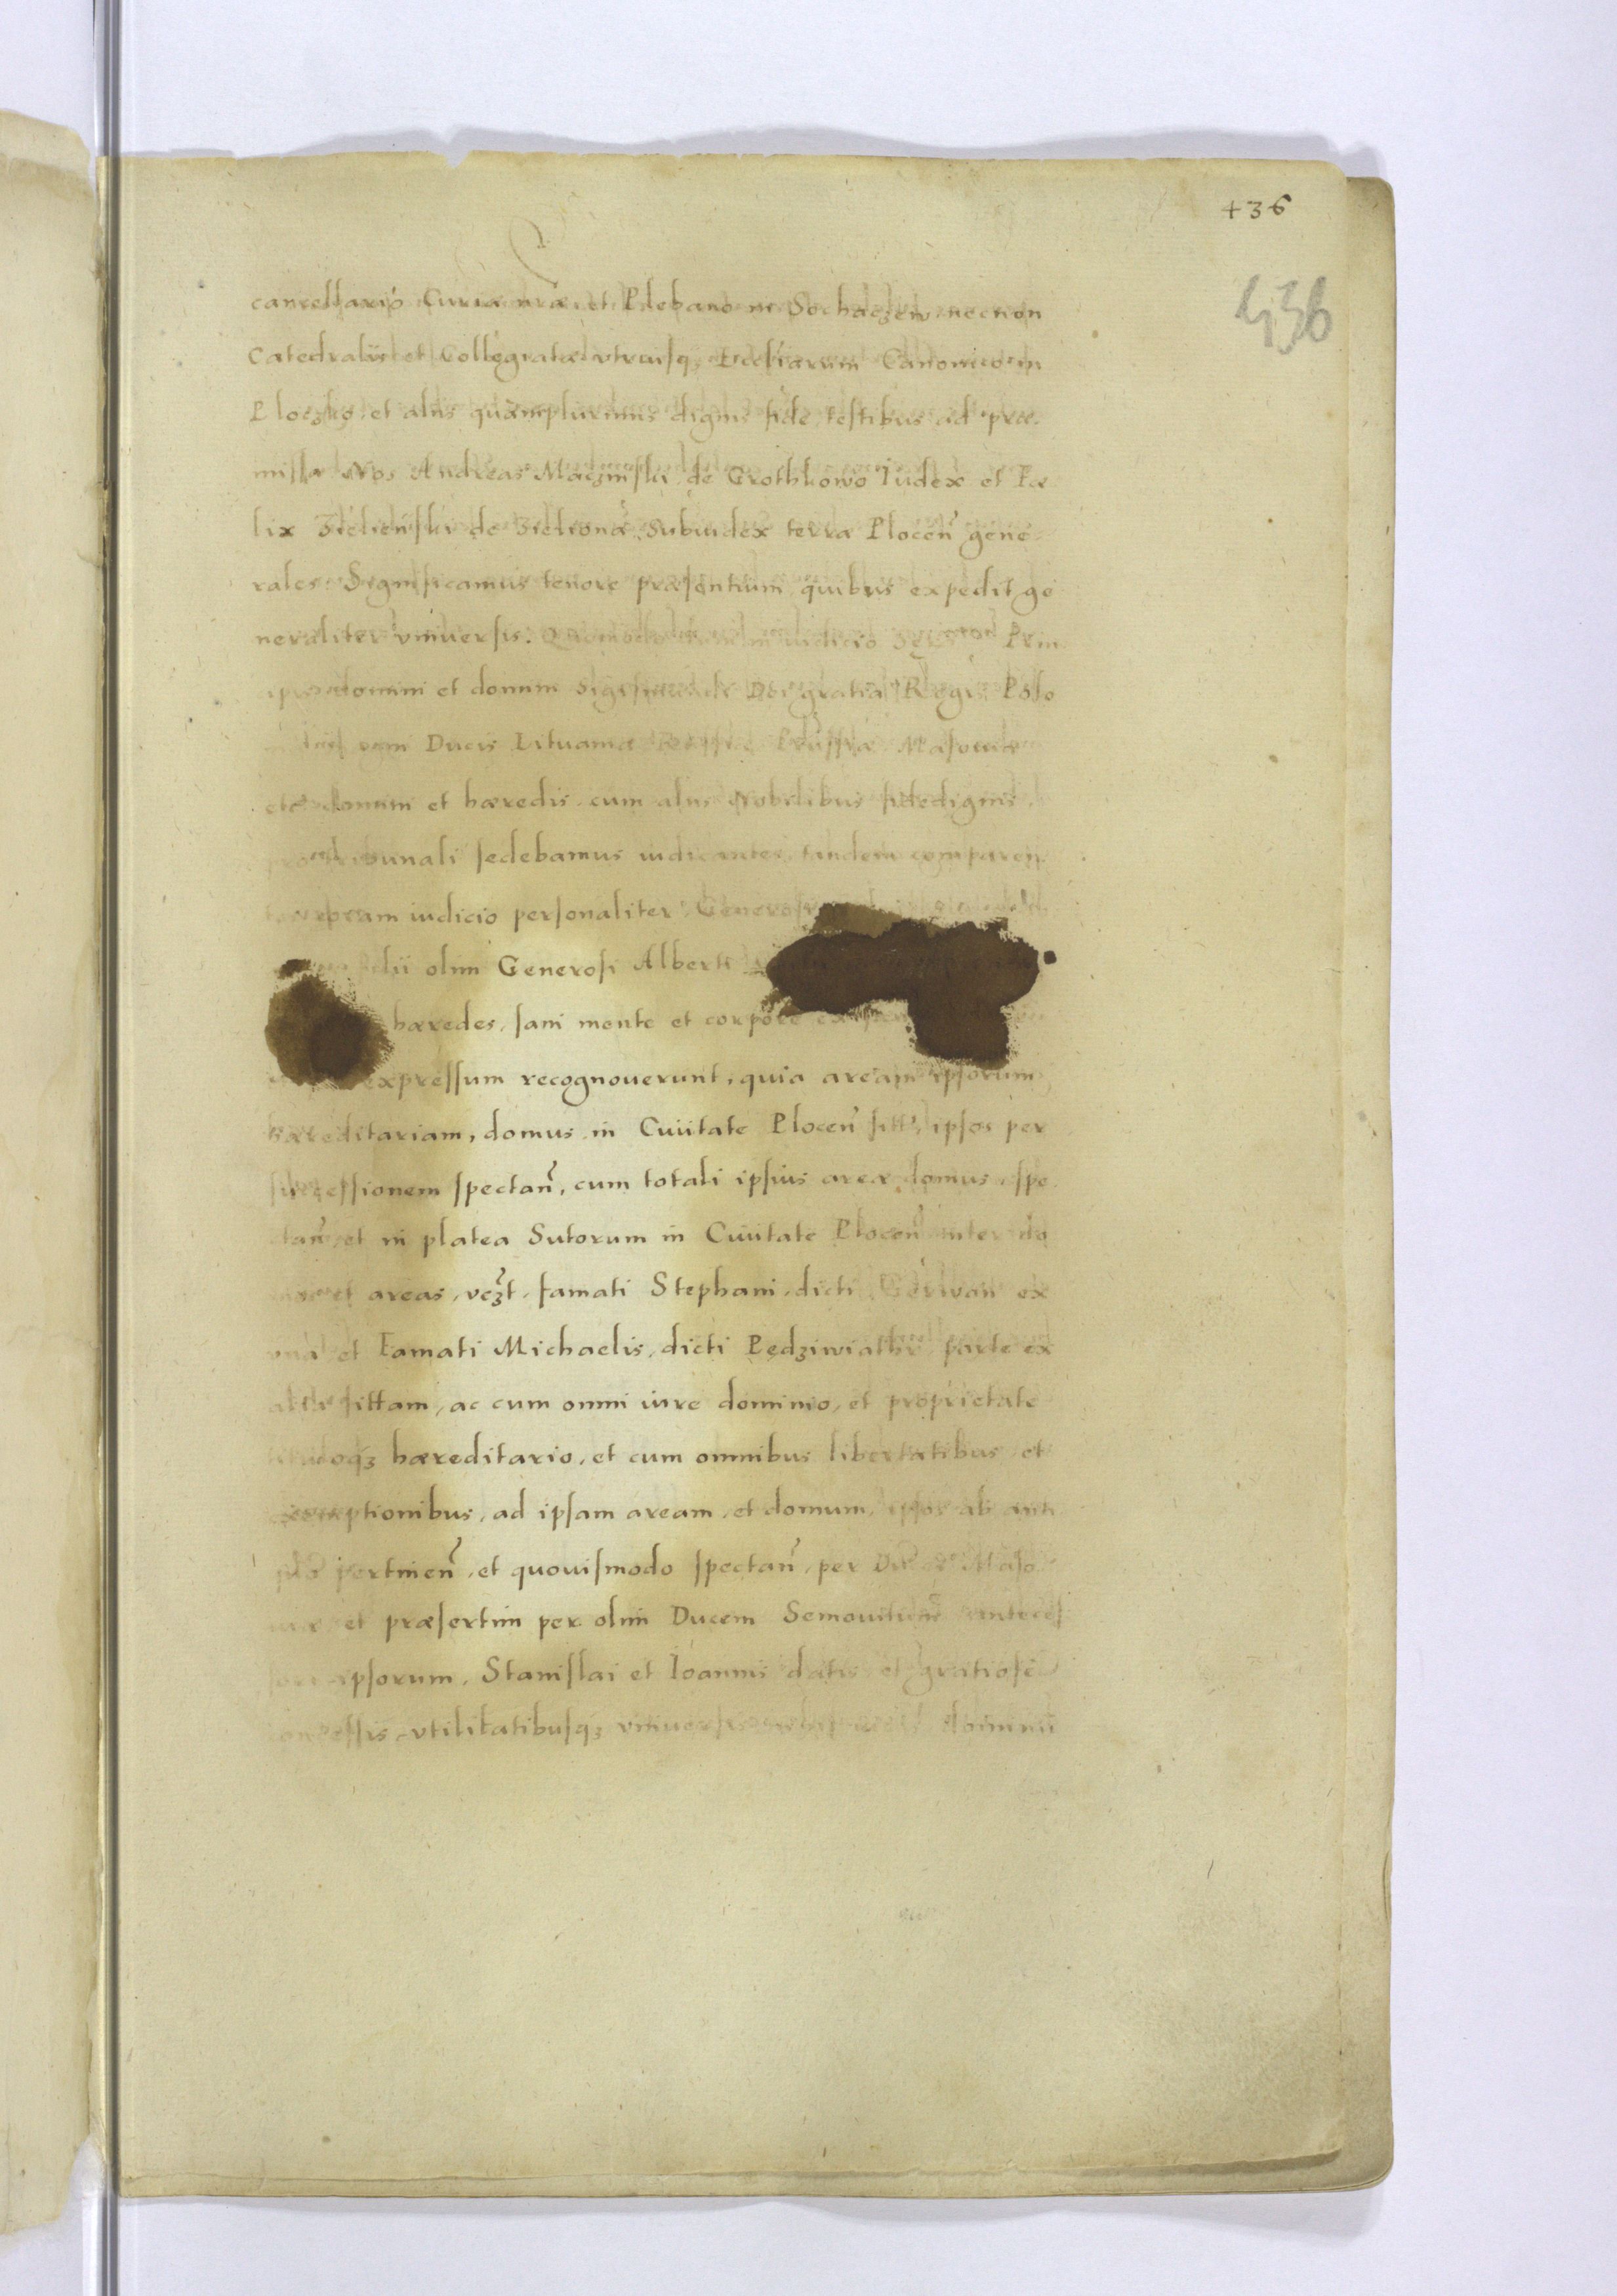 436
436
cancellario Curiæ nr̃æ et Plebano in Sochaczew, necnon
Catedralis et Collegiatæ vtriusq; Ecclesiarum Canonico in
Ploczko, et alijs quamplurimis dignis fide testibus ad præ
missa Nos Andreas Maczinski de Grothkowo Iudex et Fæ
lix Zielienski de Zielona Subiudex terræ Plocen̄ gene
rales. Significamus tenore præsentium quibus expedit ge
neraliter vniuersis. iudicio Prin
domini et domini Sigismundi Dei gratia Regis Polo
Ducis Lituaniæ Russiæ Prussiæ Masouiæ
etc domini et hæredis cum alijs Nobilibus fidedignis,
tribunali sedebamus iudicantes, tandem comparen
coram iudicio personaliter Generosi
filii olim Generosi Alberti
hæredes, sani mente et corpore
expressum recognouerunt, quia aream ipsorum
hæreditariam, domus in Ciuitate Plocen̄ sitt, ipsos per
successionem spectan̄, cum totali ipsius areæ domus spe
ctan̄, et in platea Sutorum in Ciuitate Plocen̄ inter do
et areas, vcꝫt, famati Stephani, dicti Gerwan ex
vna et Famati Michaelis, dicti Pędziwiathr parte ex
altera sittam, ac cum omni iure dominio, et proprietate
tituloqꝫ hæreditario, et cum omnibus libertatibus et
exemptionibus, ad ipsam aream, et domum, ipsos ab anti
quo pertinen̄, et quouismodo spectan̄, per Duces Maso
uiæ et præsertim per olim Ducem Semouitum anteces
sori ipsorum, Stanislai et Ioannis datis et gratiose
concessis, vtilitatibusqꝫ vniuersis dominii